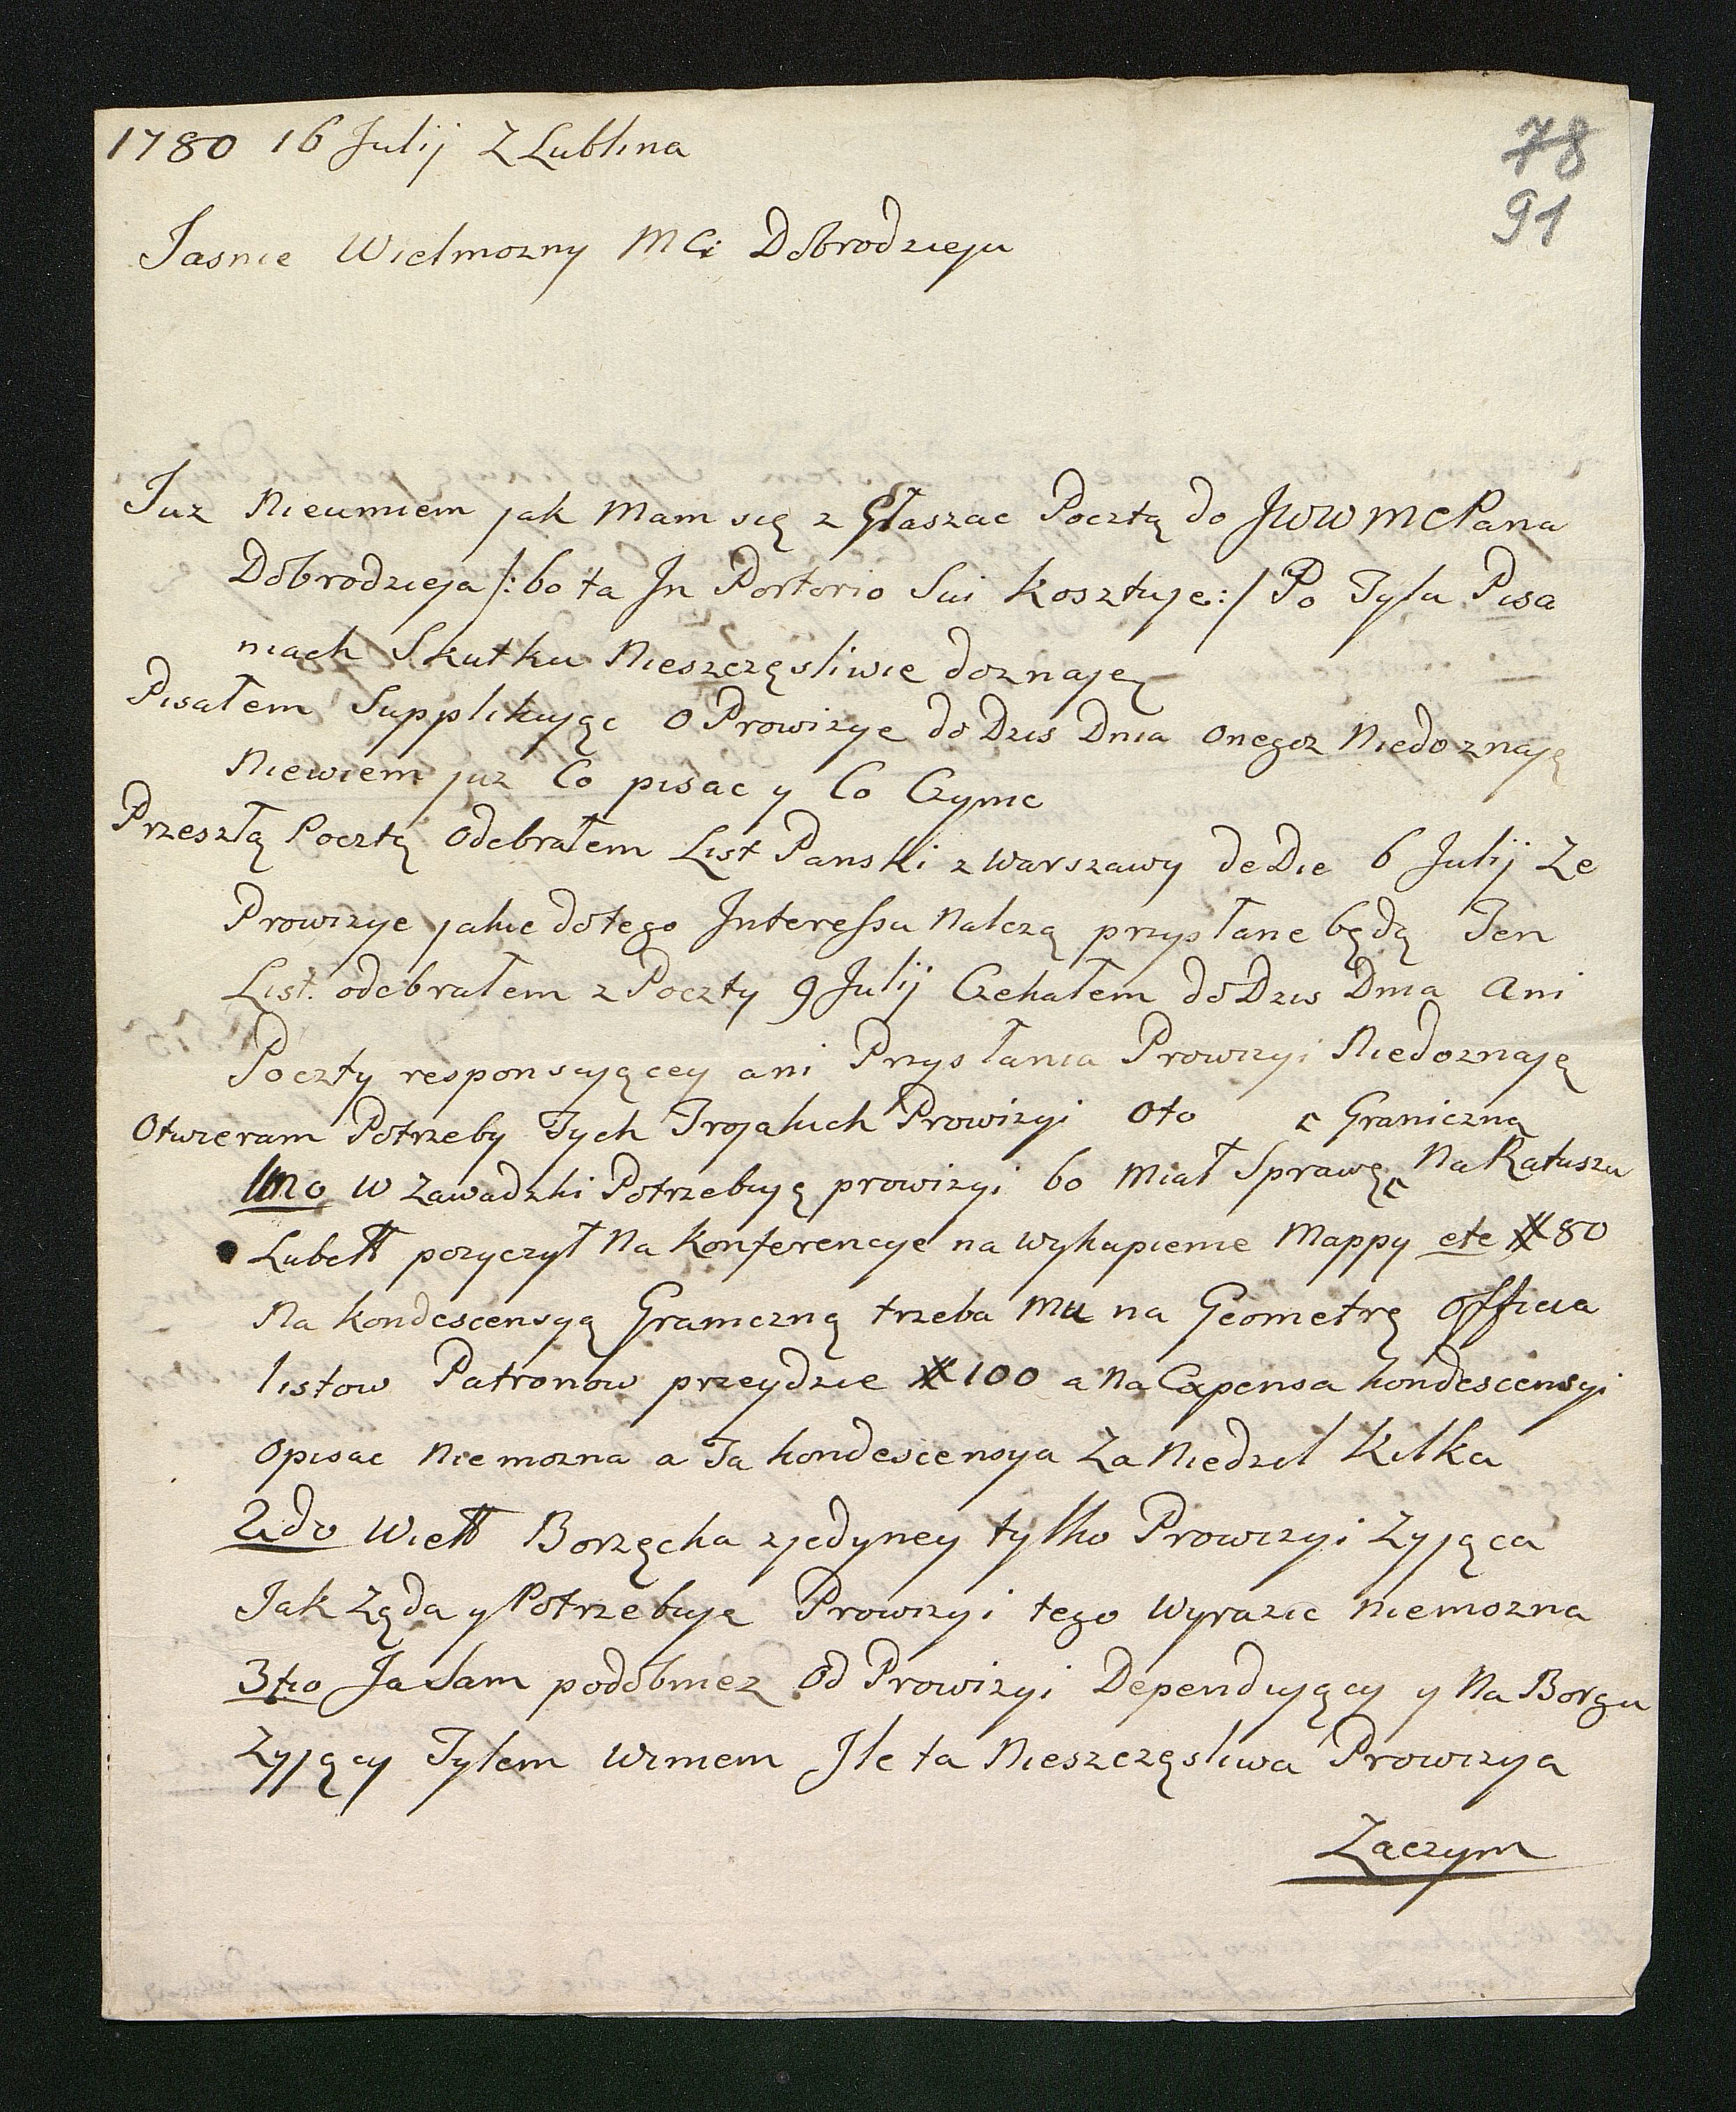 1780 16 Julij Z Lublina
78
91
Jasnie Wielmozny MCi Dobrodzieju
Juz Nieumiem jak Mam się z Głaszac Pocztą do JWW MCPana
Dobrodzieja /: bo ta In Portorio Sui kosztuje :/ Po Tylu Pisa
niach Skutku Nieszczęsliwie doznaję
Pisałem Supplikując o Prowizye do Dzis Dnia onegoz Niedoznaję
Niewiem juz Co pisac y Co Czynic
Przeszłą Pocztą Odebrałem List Panski z Warszawy de Die 6 Julij Ze
Prowizye jakie do tego Interessu Nalezą przysłane będą Ten
List odebrałem z Poczty 9 Julij Czekałem do Dzis Dnia Ani
Poczty responsującey ani Przysłania Prowizyi Niedoznaję
Otwieram Potrzeby Tych Trojakich Prowizyi Oto Graniczną
1mo W Zawadzki Potrzebuję prowizyi bo Miał Sprawę Na Ratuszu
Lubelł pozyczył Na Konferencye na wykupienie Mappy etc # 80
Na kondescensyą Graniczną trzeba Mu na Geometrę Officia
listow Patronow przeydzie # 100 a Na Expensa kondescensyi
Opisac Niemozna a Ta kondescensya Za Niedziel Kilka
2do Wielł Borzęcka z jedyney tylko Prowizyi Zyjąca
Jak Ząda y Potrzebuje Prowizyi tego Wyrazic niemozna
3tio Ja Sam podobniez Od Prowizyi Dependujący y Na Borgu
Zyjący Tylem Winien Ile ta Nieszczęsliwa Prowizya
Zaczym